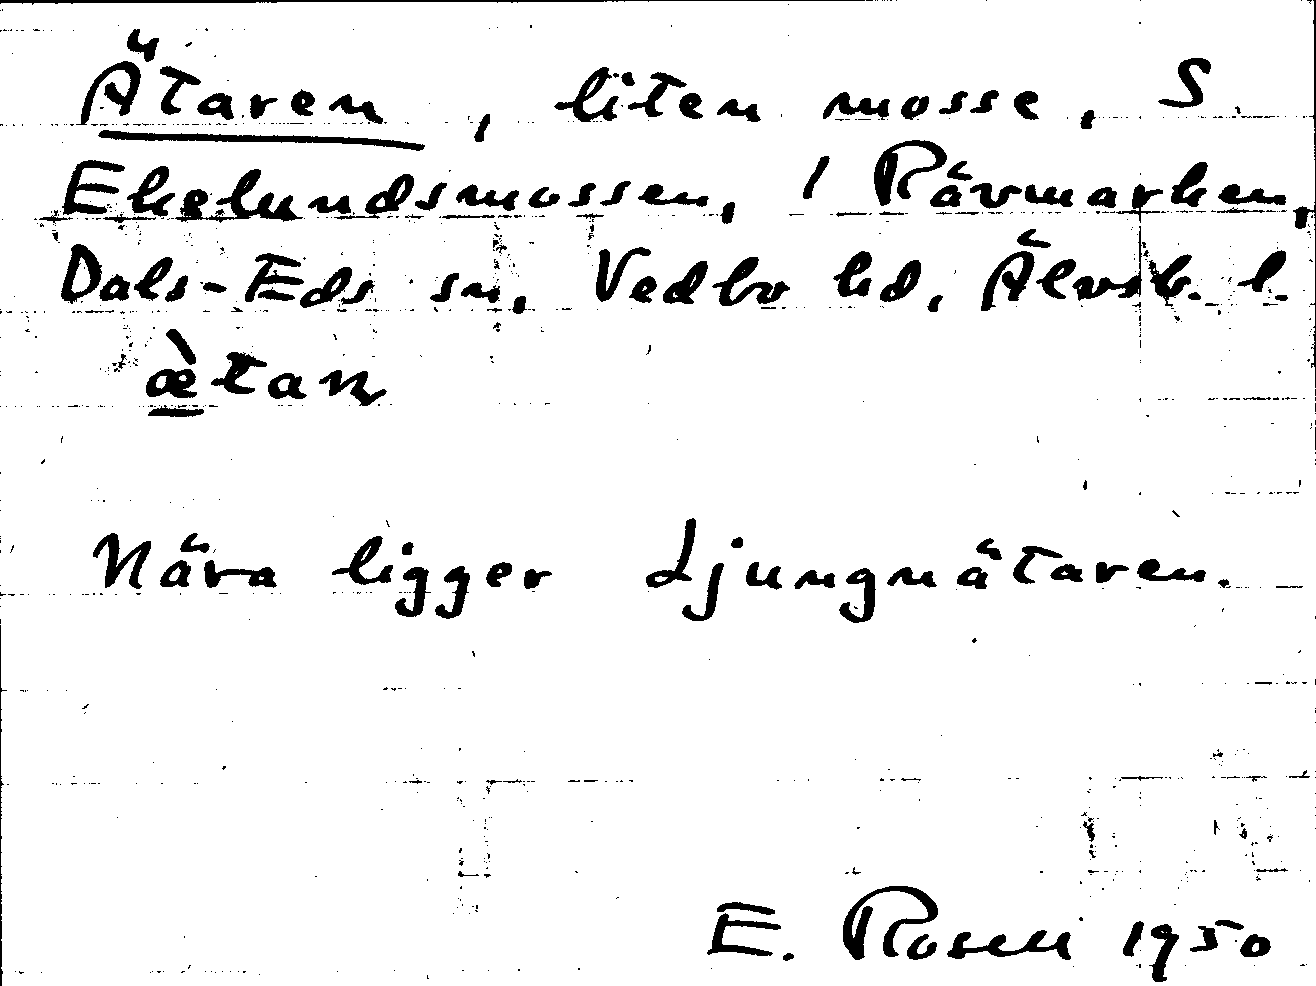 Ätaren, liten mosse, S
Ekelundsmossen, / Rävmarken,
Dals-Eds sn, Vedbo hd, Älvsb. l.
æ̀tan
Nära ligger Ljungnätaren.
E. Rosell 1950